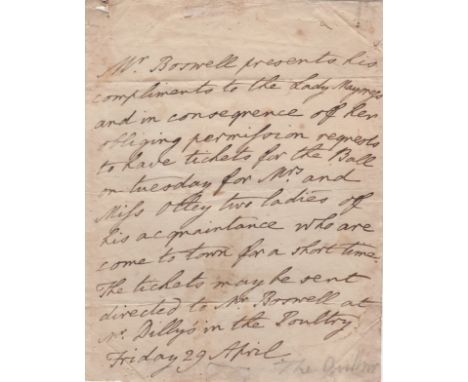 Mr. Boswell presents his
compliments to the Lady Mayoress
and in consequence of her
obliging permission requests
to have tickets for the Ball
on tuesday for Mrs. and
Miss Ottey two ladies of
his acquaintance who are
come to town for a short time.
The tickets may be sent
directed to Mr. Boswell at
Mr. Dillys in the Poultry.
Friday 29 April
The